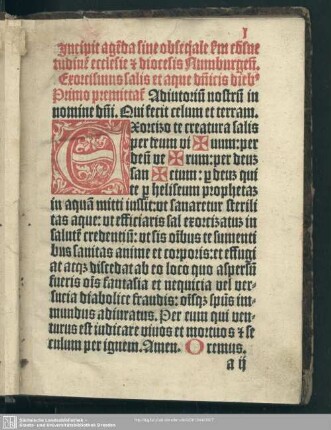 I
Incipit agēda siue obseq̄ale ẜm cōsue
tudinē ecclesie ⁊ diocesis Numburgeñ.
Exorcismus salis et aque dn̄icis dieb⁹
Primo premittat᷑ Adiutoriū nostrū in
nomine dn̄i. Qui fecit celum et terram.
Exorcizo te creatura salis
per deum vi ✠ uum: per
deū ve ✠ rum: per deuz
san ✠ ctum: ꝑ deuz qui
te ꝑ heliseum prophetaz
in aquā mitti iussit: vt sanaretur sterili
tas aque: vt efficiaris sal exorcizatuz in
salutē credentiū: vt sis oībus te sumenti
bus sanitas anime et corporis: et effugi
at atqꝫ discedat ab eo loco quo aspersū
fueris oīs fantasia et nequicia vel ver
sucia diabolice fraudis: oīsqꝫ spūs im
mundus adiuratus. Per eum qui ven
turus est iudicare viuos et mortuos ⁊ se
culum per ignem. Amen. Oremus.
a ij